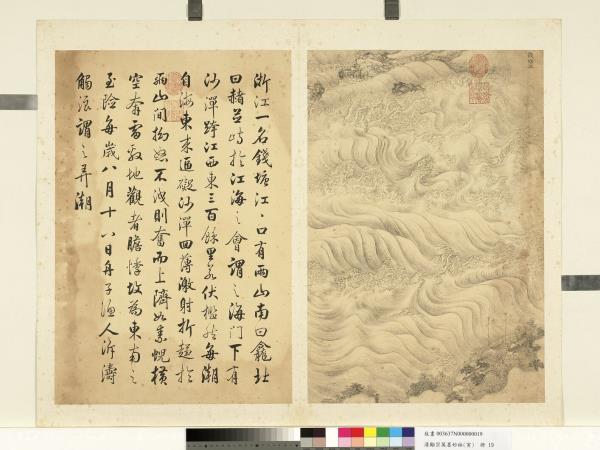 浙江一名錢塘江江口有兩山南曰龕北
曰赭並峙於江海之會謂之海門下有
沙潬跨江西東三百餘里若伏檻然每潮
自海東來逼礙沙潬回薄激射折趨於
兩山間拗怒不洩則奮而上隮如素蜺橫
空奔雷殷地觀者膽悸故為東南之
至險每歲八月十八日舟子漁人泝濤
觸浪謂之弄潮
故畫 003637N000000019